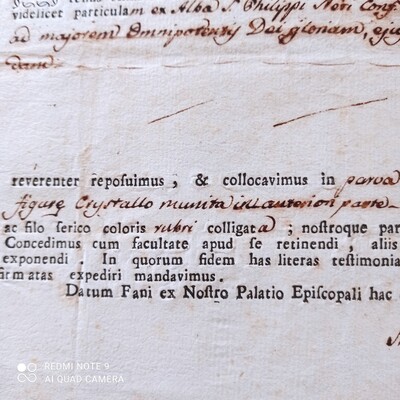 videlicet particulam ex Alba S. Philippi Neri Conf
ad majorem Omnipotentis Dei gloriam, ejus
reverenter reposuimus, & collocavimus in parva
figuræ Crystallo munita in anteriori parte
ac filo serico coloris rubri colligata; nostroque par
Concedimus cum facultate apud se retinendi, aliis
exponendi. In quorum fidem has literas testimonia
firmatas expediri mandavimus.
Datum Fani ex Nostro Palatio Episcopali hac
REDMI NOTE 9
AI QUAD CAMERA